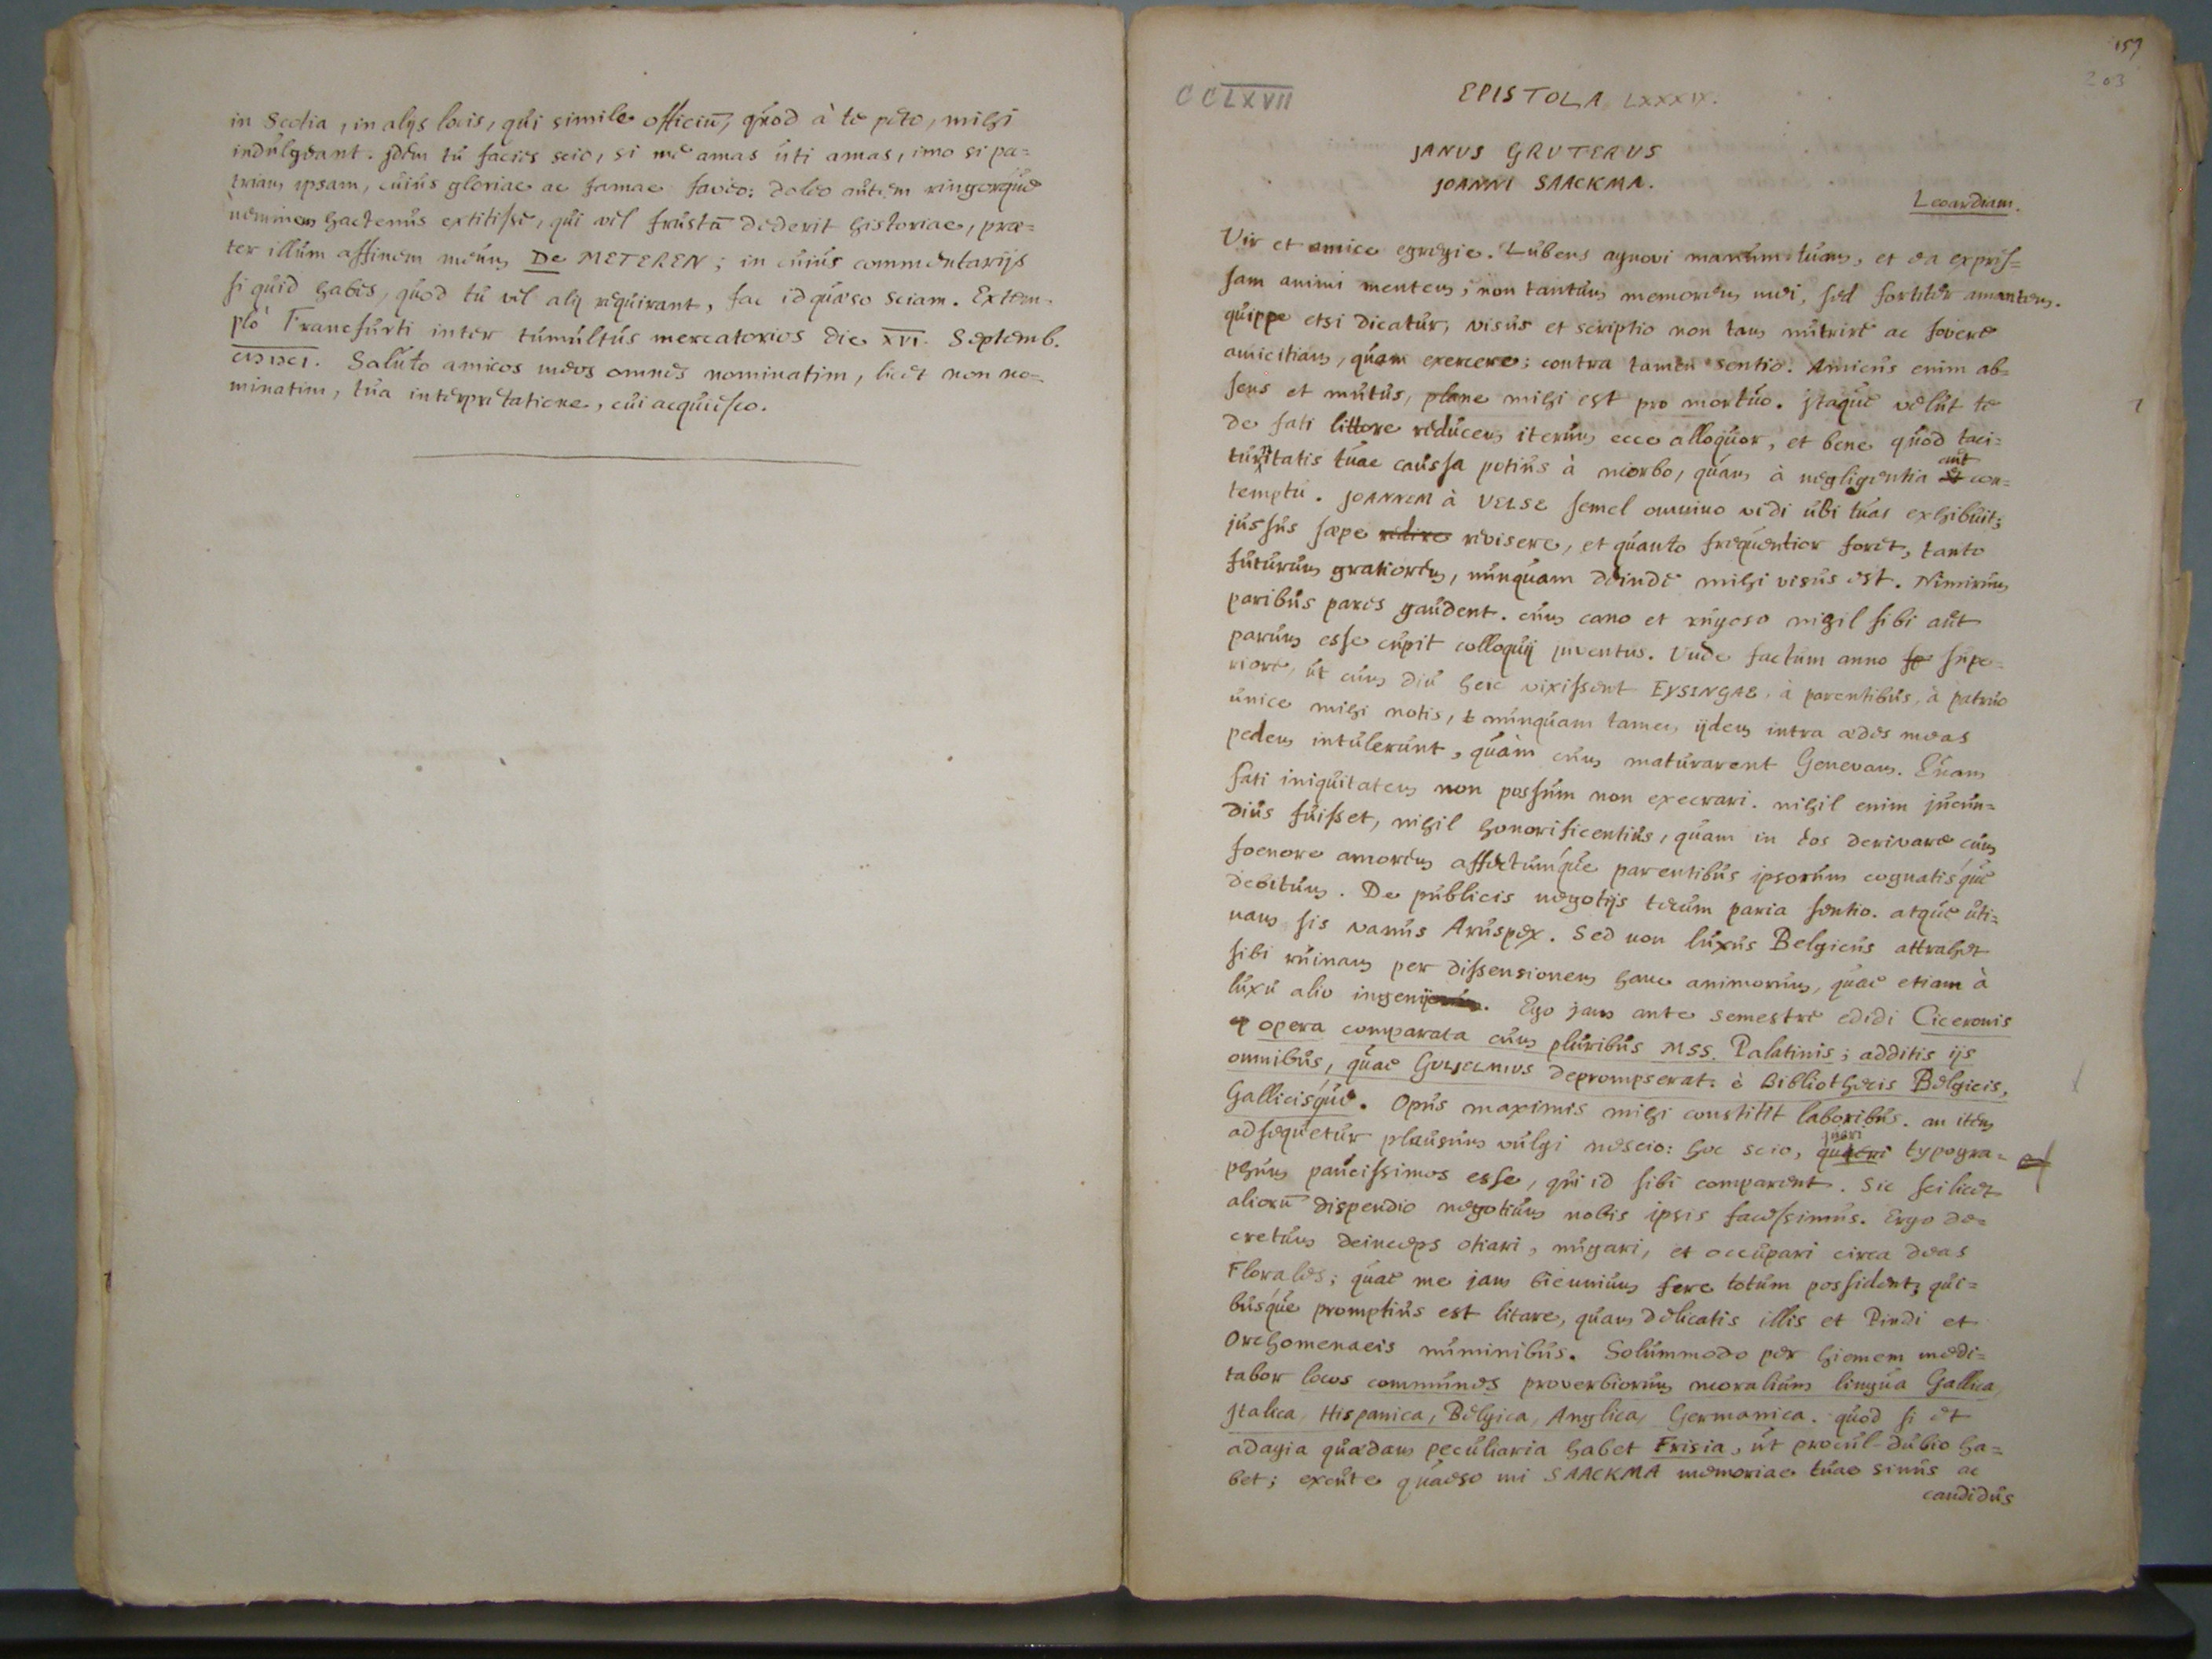 in Scotia, in alijs locis, qui simile officiū, quod à te peto, mihi
indulgeant. Idem tu facies scio, si me amas uti amas, imo si pa=
triam ipsam, cuius gloriae ac famae faveo: doleo autem ringorque
neminem hactenus extitisse, qui vel frustū dederit historiae, prae=
ter illum affinem meum De METEREN; in cuius commentarijs
si quid habes, quod tu vel alij requirant, fac id quaeso sciam. Extem-
plo Francfurti inter tumultus mercatorios die XVI. Septemb.
Saluto amicos meos omnes nominatim, licet non no-
minatim, tua interpretatione, cui acquiesco.
159
203
CCLXVII
EPISTOLA LXXXIX.
JANUS GRUTERUS
JOANNI SAACKMA.
Leoardiam.
Vir et amice egregie. Lubens agnovi manum tuam, et ea expres=
sam animi mentem; non tantum memorem mei, sed fortiter amantem.
quippe etsi dicatur, visus et scriptio non tam nutrire ac fovere
amicitiam, quam exercere; contra tamen sentio. Amicus enim ab=
sens et mutus, plane mihi est pro mortuo. Itaque velut te
de fati littore reducem iterum ecce alloquor, et bene quod taci=
turnitatis tuae caussa potius à morbo, quam à negligentia aut con=
temptu. JOANNEM à VELSE semel omnino vidi ubi tuas exhibuit;
jussus saepe redire revisere, et quanto frequentior foret, tanto
futurum gratiorem, nunquam deinde mihi visus est. Nimirum
paribus pares gaudent. cum cano et rugoso nihil sibi aut
parum esse cupit colloquij juventus. Unde factum anno supe=
riore, ut cum diu heic vixissent EYSINGAE, à parentibus, à patruo
unice mihi notis, nunquam tamen ijdem intra aedes meas
pedem intulerunt, quàm cum maturarent Genevam. Quam
fati iniquitatem non possum non execrari. nihil enim jucun=
dius fuisset, nihil honorificentius, quam in eos derivare cum
foenore amorem affectumque parentibus ipsorum cognatisque
debitum. De publicis negotijs tecum paria sentio. atque uti=
nam sis vanus Aruspex. Sed non luxus Belgicus attrahet
sibi ruinam per dissensionem hanc animorum, quae etiam à
luxu alio ingenij. Ego jam ante semestre edidi Ciceronis
opera comparata cum pluribus MSS. Palatinis; additis ijs
omnibus, quae GULIELMIUS deprompserat è Bibliothecis Belgicis,
Gallicisque. Opus maximis mihi constitit laboribus. an item
adsequetur plausum vulgi nescio: hoc scio, queri typogra=
phum paucissimos esse, qui id sibi comparent. Sic scilicet
aliorū dispendio negotium nobis ipsis facessimus. Ergo de=
cretum deinceps otiari, nugari, et occupari circa deas
Florales; quae me jam biennium fere totum possident; qui=
busque promptius est litare, quam delicatis illis et Pindi et
Orchomenaeis numinibus. Solummodo per hiemem medi=
tabor locos communes proverbiorum moralium lingua Gallica,
Italica, Hispanica, Belgica, Anglica, Germanica. quod si et
adagia quaedam peculiaria habet Frisia, ut procul dubio ha=
bet; excute quaeso mi SAACKMA memoriae tuae sinus ac
candidus